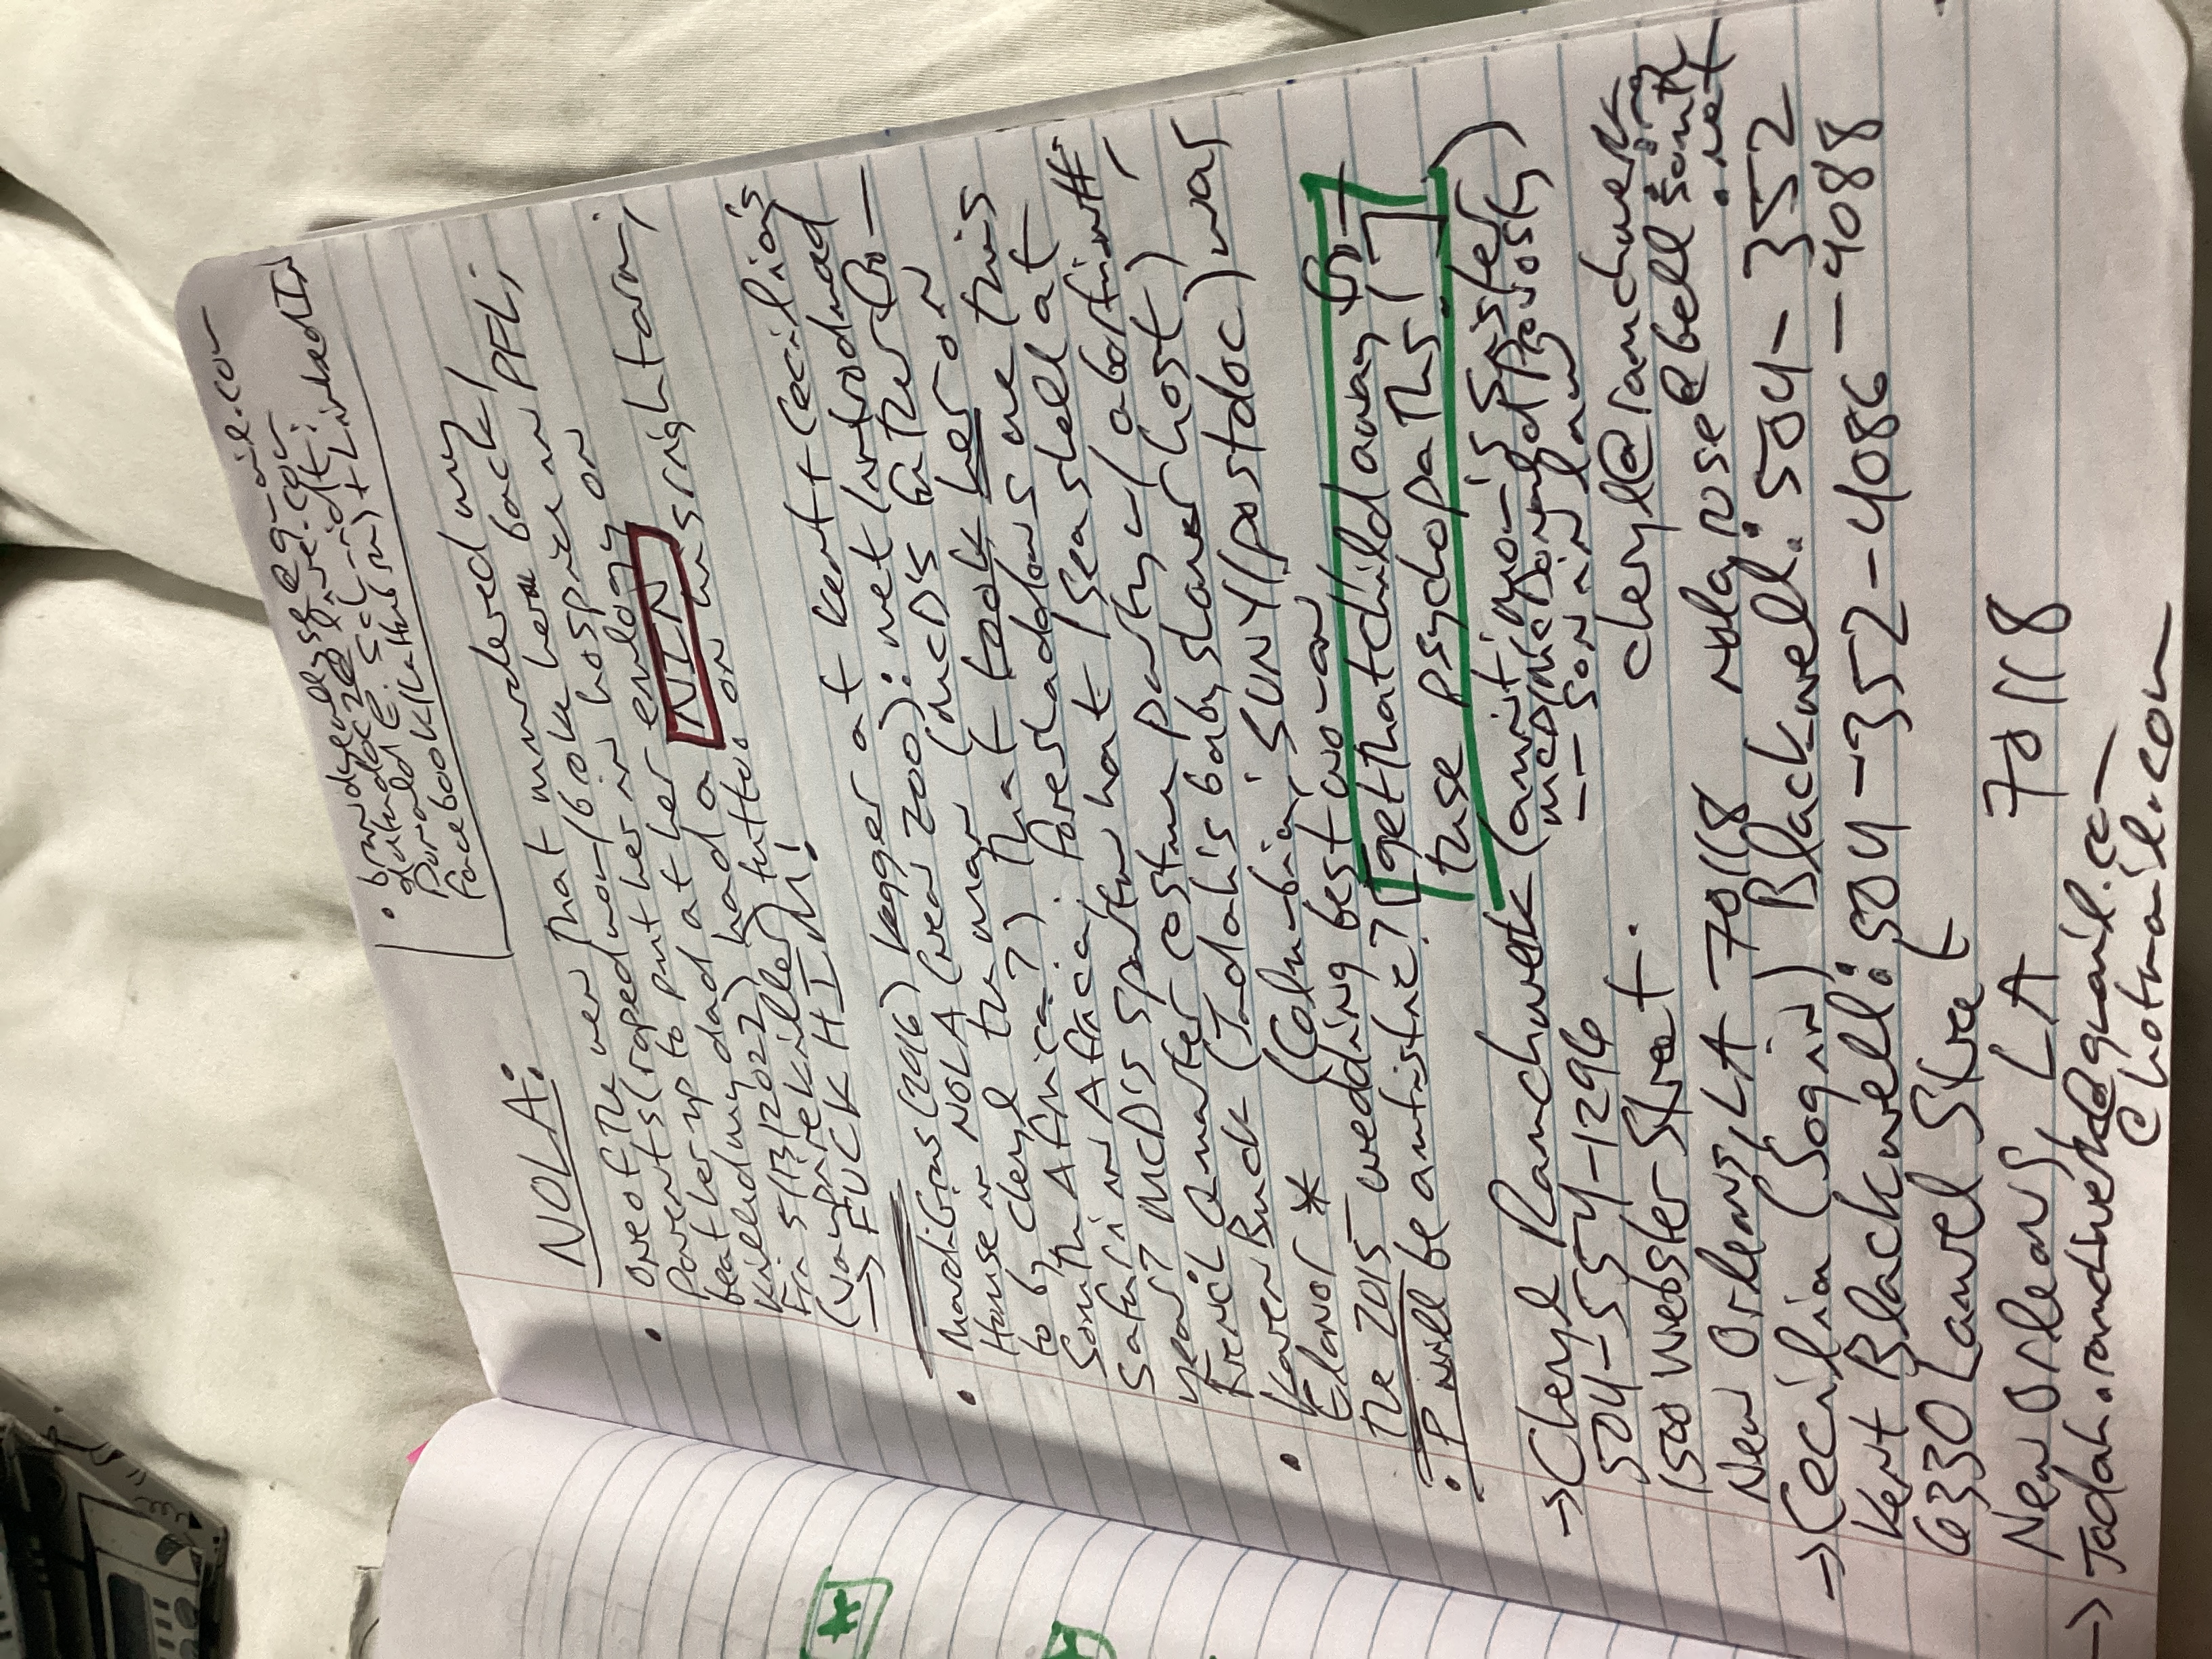 • brandyeallyse@gmail.com
datadoc2@live.com
Donald E. Schmidt:
Facebook + LinkedIn
NOLA:
• One of the men that murdered my
parents (raped mom/broke her back/
beat her up to put her in hospice in PFL;
killed my dad at her eulogy on
Fri 5/13/2022) had a NIN
(vampire killer) tattoo on his right arm;
→ FUCK HIM!
• Mardi Gras (2016) kegger at Kent + Cecilia's
House in NOLA (near zoo): met/introduced
to by Cheryl the man (McD's father from
South Africa?) that took her on
Safari in Africa; foreshadows me this
year? McD's spartan hat/seashell at
French Quarter costume party w/ abortion #;
• Karen Buck (Jadah's baby shower host)
Elanor * (Columbia; SUNY/postdoc) was
the 2015 wedding best woman;
• P will be autistic? [get that child away from
these psychopaths!]
→ Cheryl Ranchwerk (aunt; mom's sister
McD/McDonald Provosty)
-- son in law
504-554-1296
1500 Webster Street
cheryl@ranchwerk
New Orleans, LA 70118
nola,rose@bellsouth
.net
→ Cecilia (Sogin) Blackwell: 504-352
-4088
Kent Blackwell: 504-352-4086
6330 Laurel Street
New Orleans, LA 70118
→ Jadah.ranchwerk@gmail.com
@hotmail.com